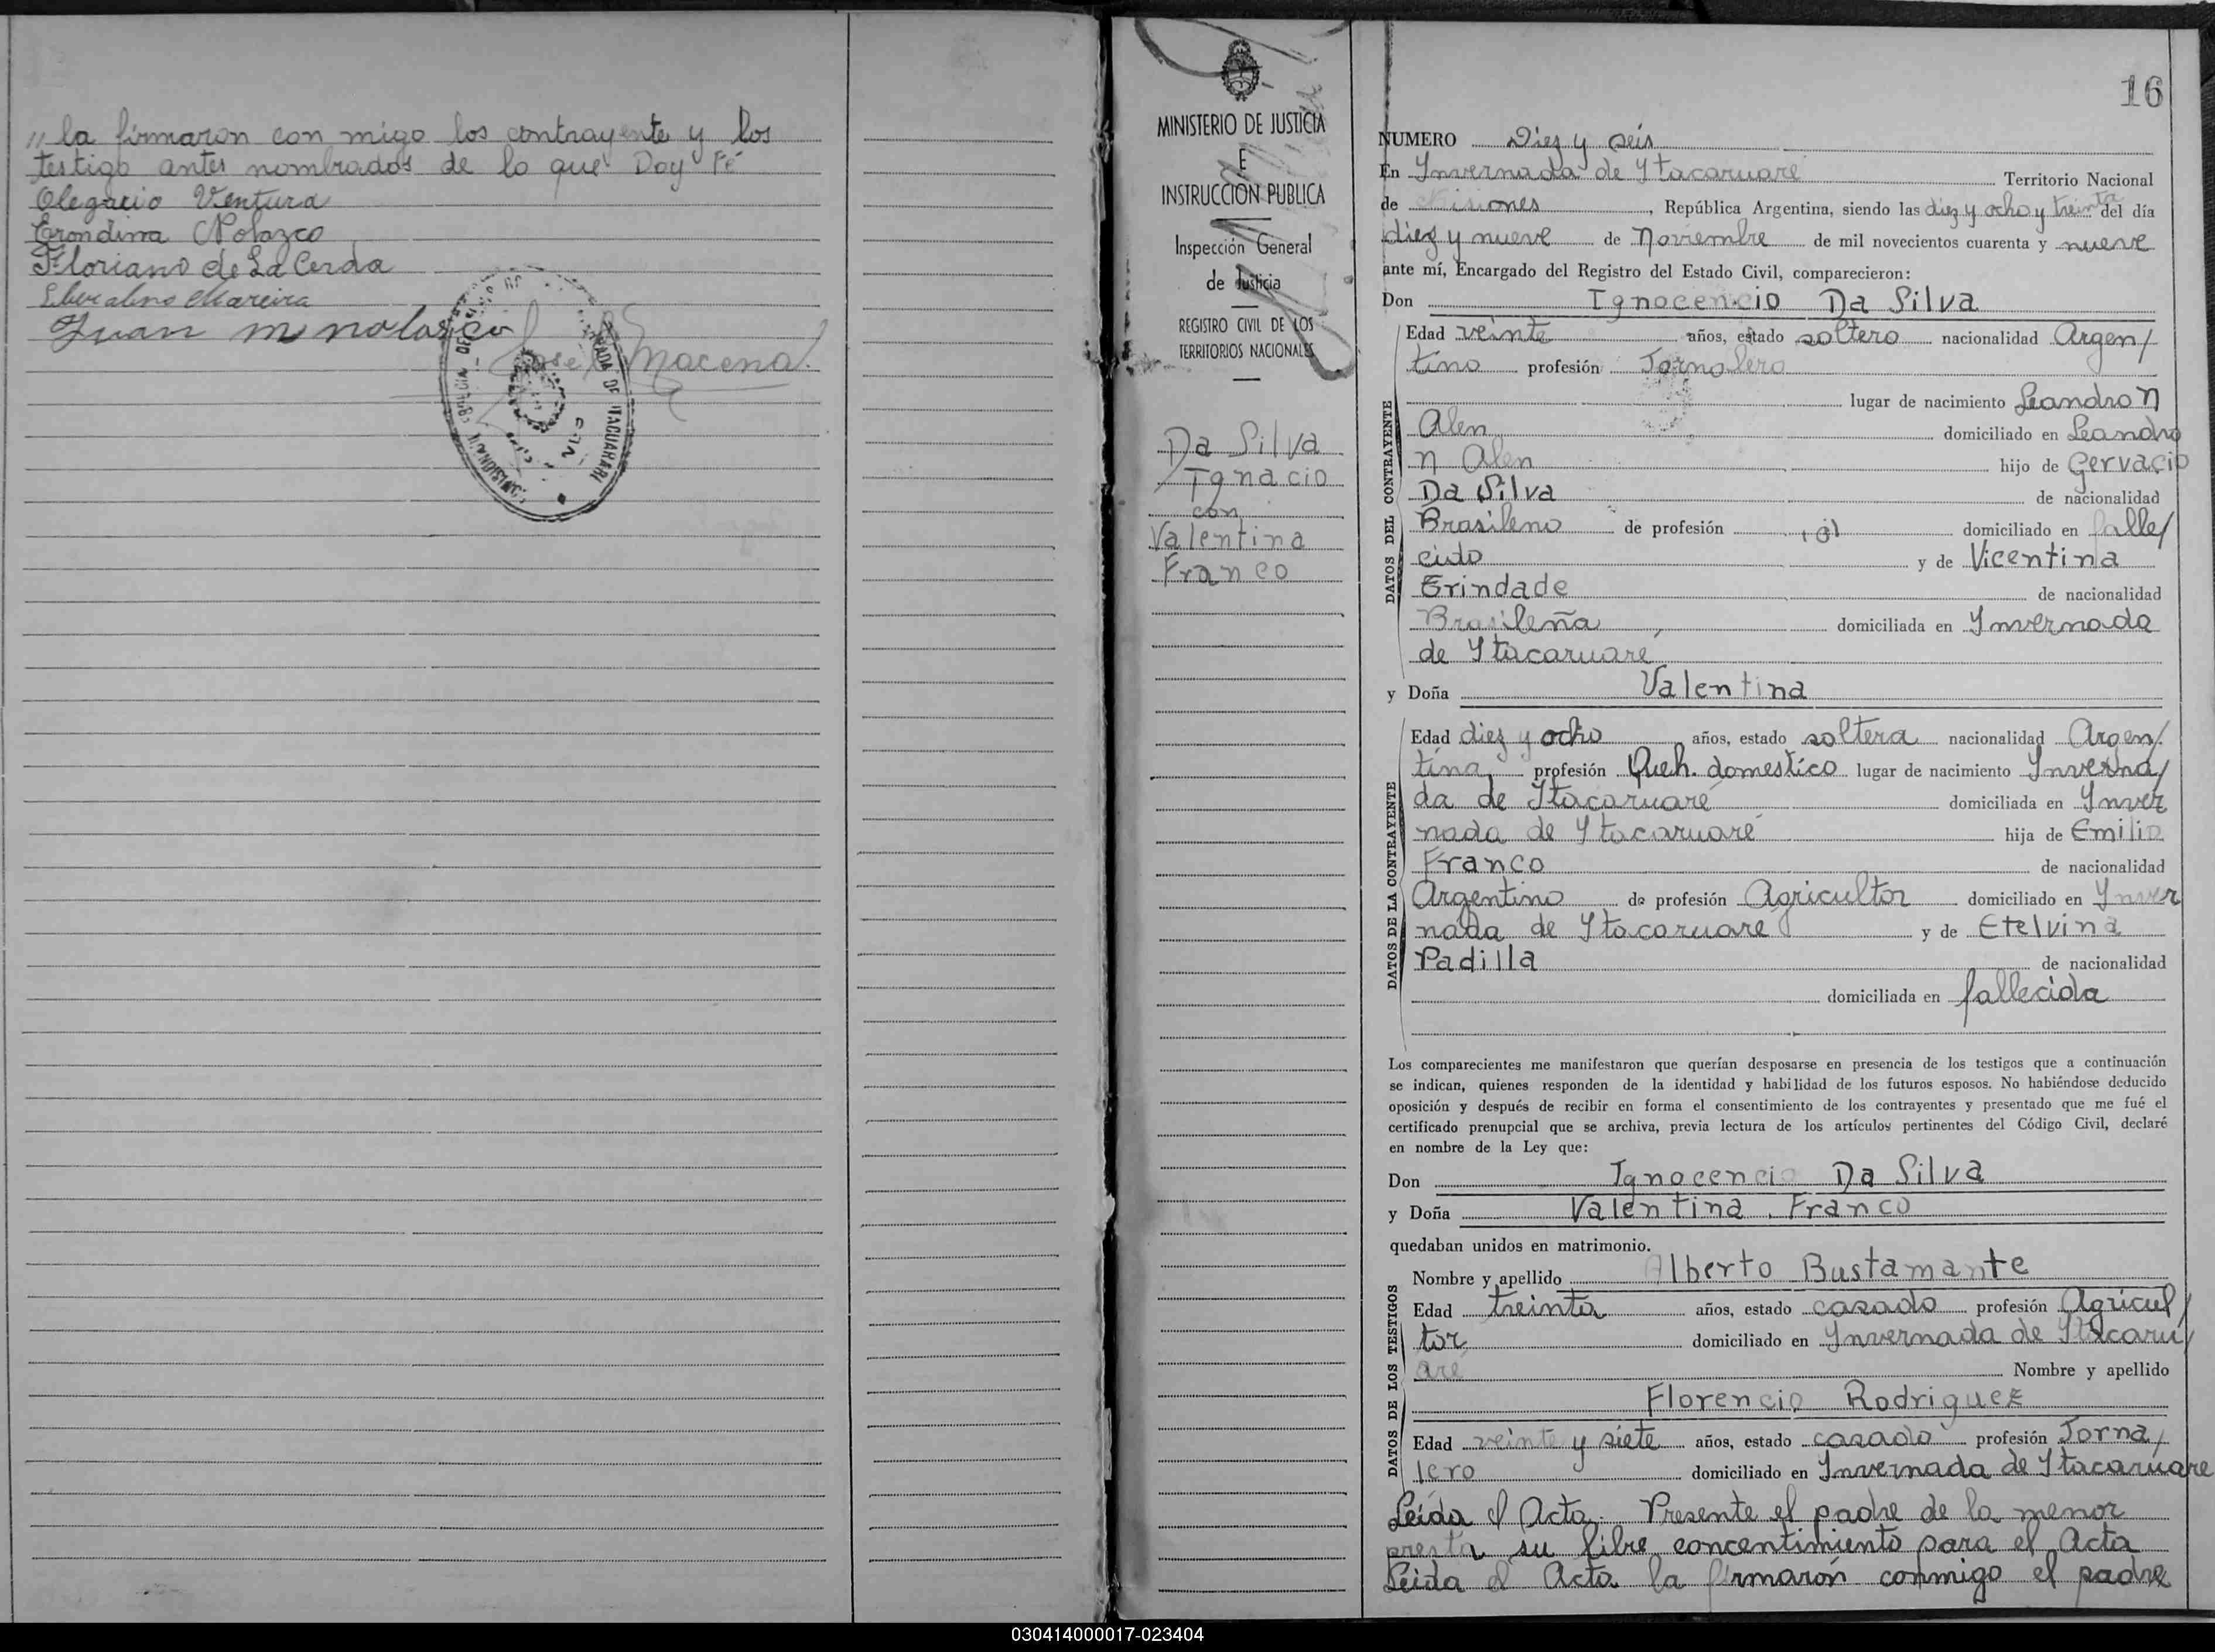 " la firmaron con migo los contrayente y los
testigo antes nombrados de lo que Doy Fé
Olegario Ventura
Erondina Nolazco
Floriano de La Cerda
Liberalino Mareira
Juan M nolasco
Jose Macena
16
MINISTERIO DE JUSTICIA
E
INSTRUCCION PUBLICA
Inspección General
de Justicia
REGISTRO CIVIL DE LOS
TERRITORIOS NACIONALES
Da Silva
Ignacio
con
Valentina
Franco
NUMERO Diez y seis
En Ynvernada de Ytacaruaré Territorio Nacional
de Misiones, República Argentina, siendo las diez y ocho y treinta del día
diez y nueve de Noviembre de mil novecientos cuarenta y nueve
ante mí, Encargado del Registro del Estado Civil, comparecieron:
Don Ignocencio Da Silva
DATOS DEL CONTRAYENTE
Edad veinte años, estado soltero nacionalidad Argen/
tino profesión Jornalero
lugar de nacimiento Leandro N
Alen domiciliado en Leandro
N Alen hijo de Gervacio
Da Silva de nacionalidad
Brasileno de profesión domiciliado en falle/
cido y de Vicentina
Trindade de nacionalidad
Brasileña domiciliada en Ynvernada
de Ytacaruaré
y Doña Valentina
DATOS DE LA CONTRAYENTE
Edad diez y ocho años, estado soltera nacionalidad Argen/
tina profesión Queh. domestico lugar de nacimiento Ynverna/
da de Ytacaruaré domiciliada en Ynver
nada de Ytacaruaré hija de Emilio
Franco de nacionalidad
Argentino de profesión Agricultor domiciliado en Ynver
nada de Ytacaruare y de Etelvina
Padilla de nacionalidad
domiciliada en fallecida
Los comparecientes me manifestaron que querían desposarse en presencia de los testigos que a continuación
se indican, quienes responden de la identidad y habilidad de los futuros esposos. No habiéndose deducido
oposición y después de recibir en forma el consentimiento de los contrayentes y presentado que me fué el
certificado prenupcial que se archiva, previa lectura de los artículos pertinentes del Código Civil, declaré
en nombre de la Ley que:
Don Ignocencio Da Silva
y Doña Valentina Franco
quedaban unidos en matrimonio.
DATOS DE LOS TESTIGOS
Nombre y apellido Alberto Bustamante
Edad treinta años, estado casado profesión Agricul/
tor domiciliado en Ynvernada de Ytacaru/
aré Nombre y apellido
Florencio Rodriguez
Edad veinte y siete años, estado casado profesión Jorna/
lero domiciliado en Ynvernada de Ytacaruare
Leida el Acta. Presente el padre de la menor
presta su libre concentimiento para el Acta
Leida el Acta la firmarón conmigo el padre
030414000017-023404